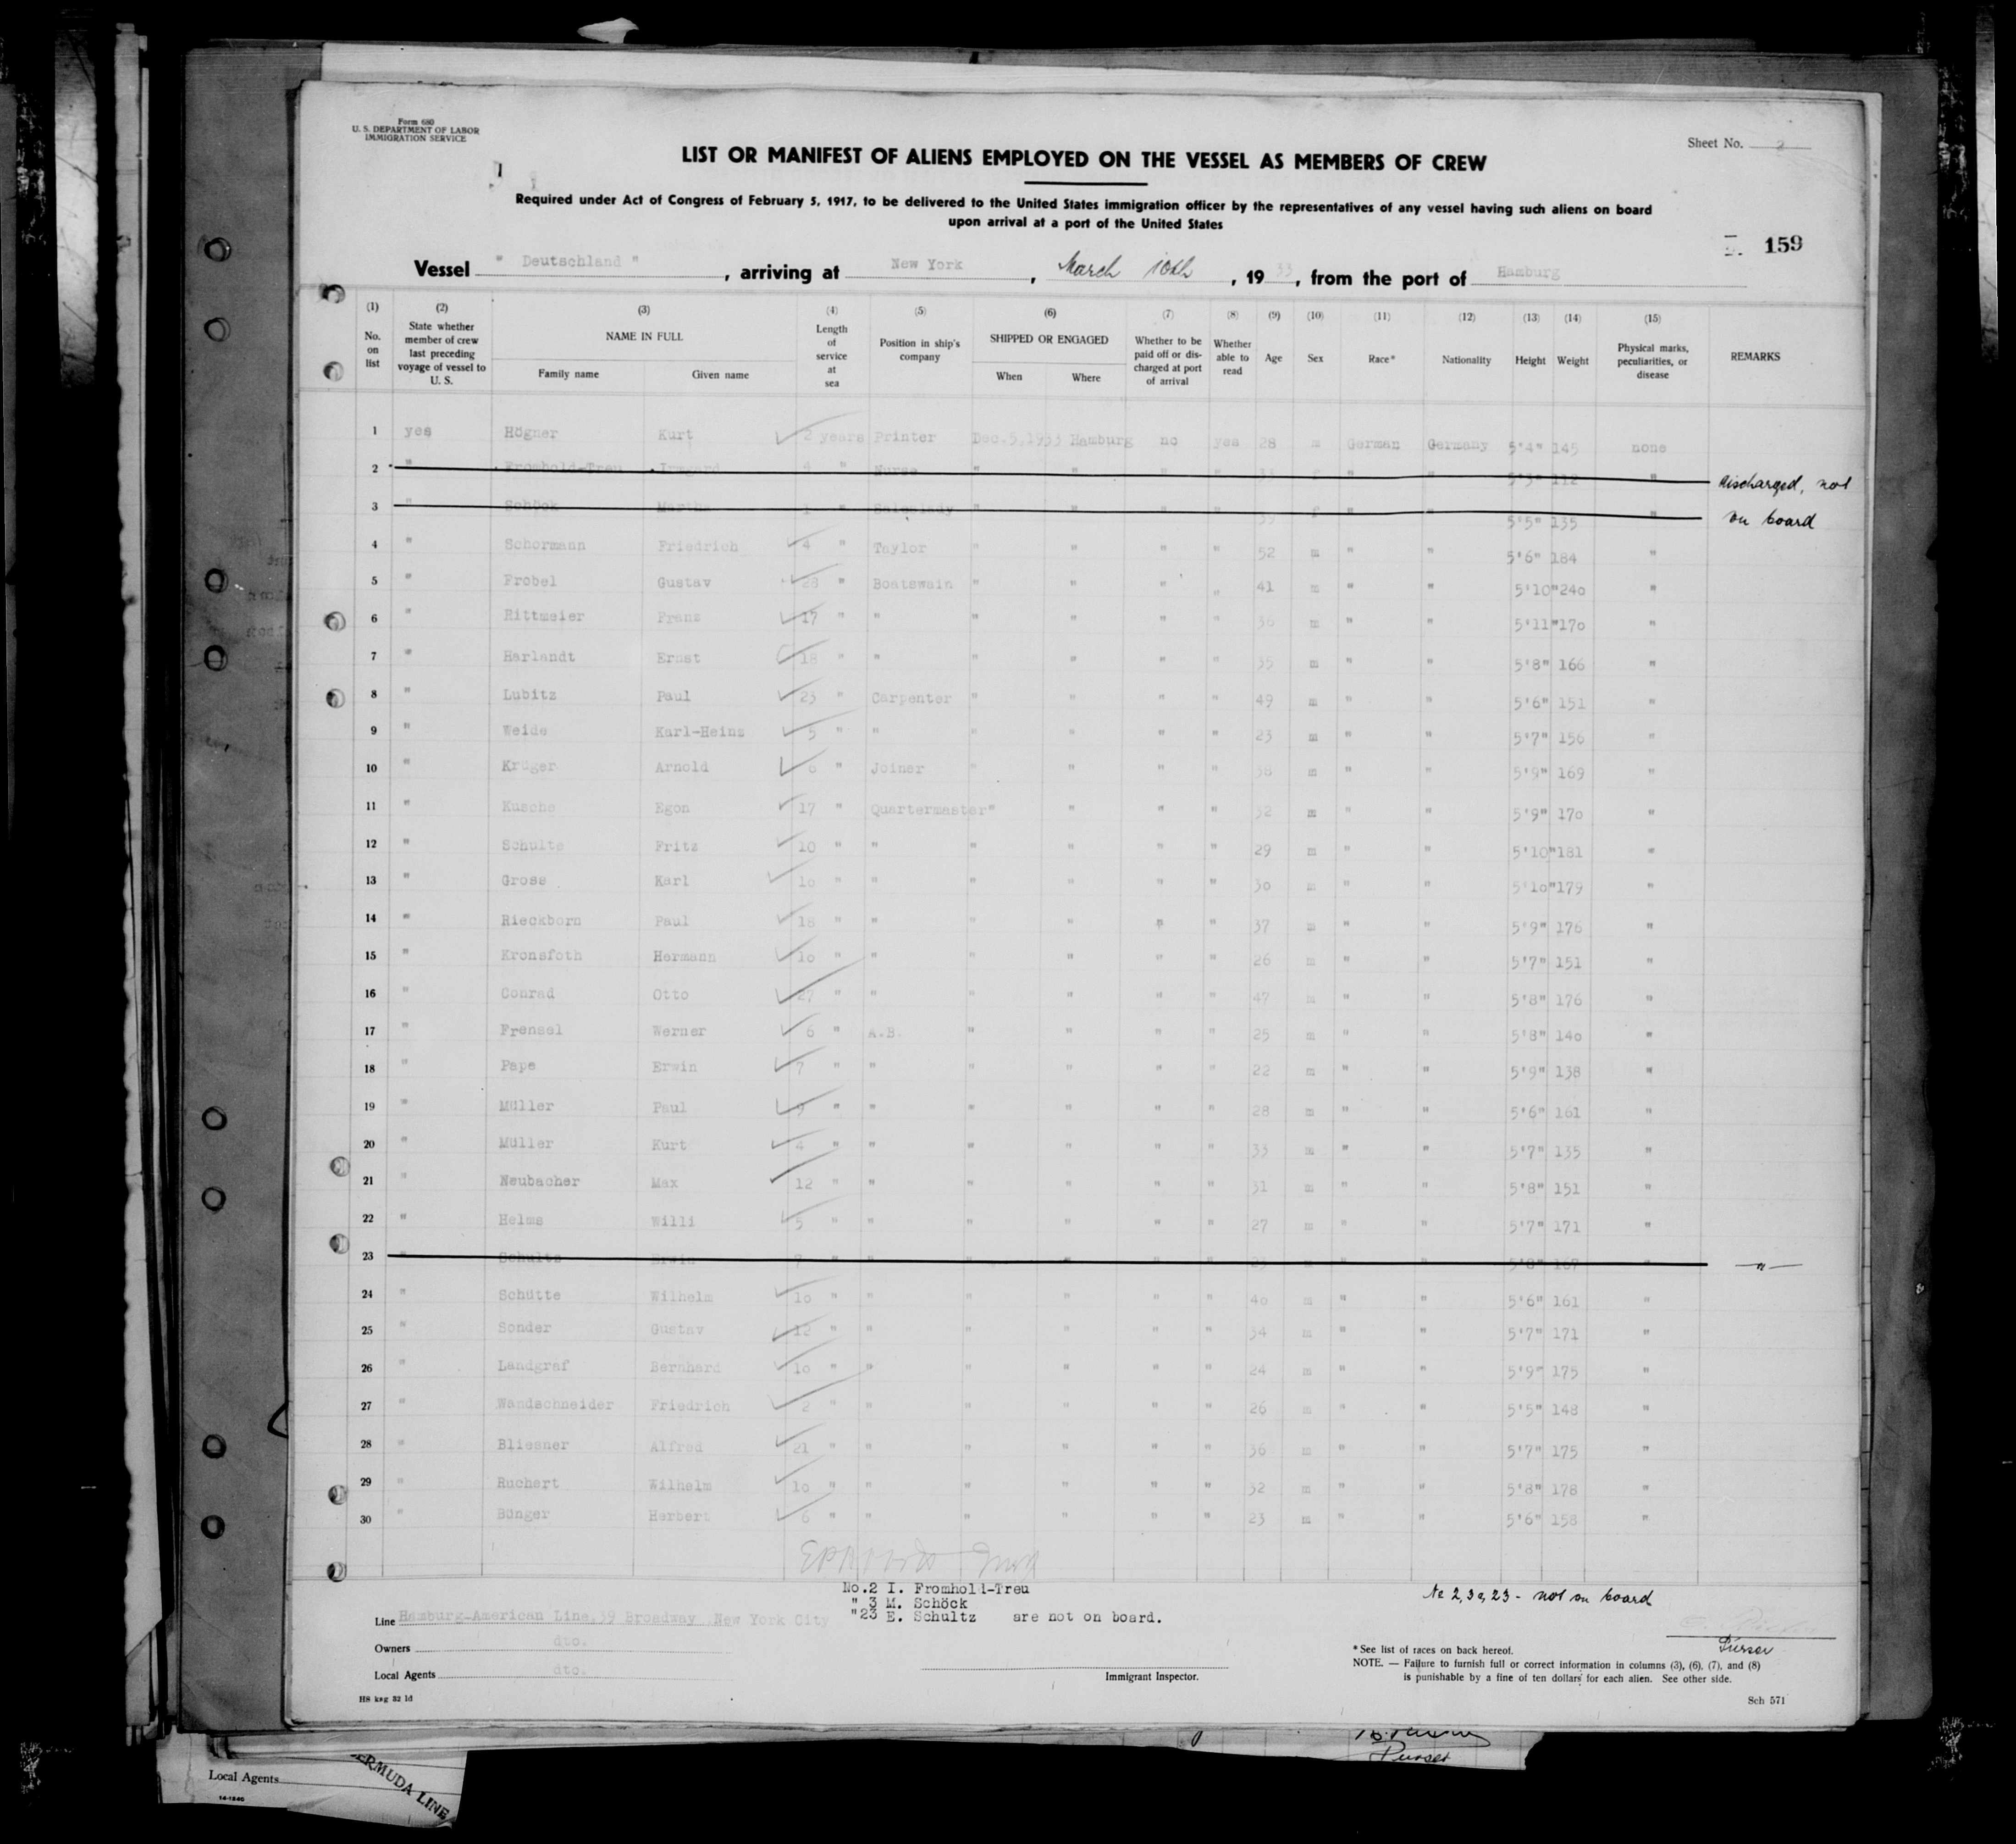 Form 680
U. S. DEPARTMENT OF LABOR
IMMIGRATION SERVICE
Sheet No. 2
LIST OR MANIFEST OF ALIENS EMPLOYED ON THE VESSEL AS MEMBERS OF CREW
Required under Act of Congress of February 5, 1917, to be delivered to the United States immigration officer by the representatives of any vessel having such aliens on board
upon arrival at a port of the United States
159
Vessel " Deutschland " , arriving at New York , March 10th , 19 33 , from the port of Hamburg
(1) No. on list
(2) State whether member of crew last preceding voyage of vessel to U. S.
(3) NAME IN FULL Family name Given name
(4) Length of service at sea
(5) Position in ship's company
(6) SHIPPED OR ENGAGED When Where
(7) Whether to be paid off or dis-charged at port of arrival
(8) Whether able to read
(9) Age
(10) Sex
(11) Race*
(12) Nationality
(13) Height
(14) Weight
(15) Physical marks, peculiarities, or disease
REMARKS
1 yes Högner Kurt 2 years Printer Dec.5,1933 Hamburg no yes 28 m German Germany 5'4" 145 none
2 " Fromhold-Treu Irmgard " Nurse " " " " 33 f " " 5'3" 112 " discharged, not
3 " Schöck Martha 1 " Saleslady " " " " f " " 5'5" 135 " on board
4 " Schormann Friedrich 4 " Taylor " " " " 52 m " " 5'6" 184 "
5 " Frobel Gustav 28 " Boatswain " " " " 41 m " " 5'10" 240 "
6 " Rittmeier Franz 17 " " " " " " 36 m " " 5'11" 170 "
7 " Harlandt Ernst 18 " " " " " " 35 m " " 5'8" 166 "
8 " Lubitz Paul 23 " Carpenter " " " " 49 m " " 5'6" 151 "
9 " Weide Karl-Heinz 5 " " " " " " 23 m " " 5'7" 156 "
10 " Krüger Arnold 6 " Joiner " " " " 38 m " " 5'9" 169 "
11 " Kusche Egon 17 " Quartermaster " " " " 32 m " " 5'9" 170 "
12 " Schulte Fritz 10 " " " " " " 29 m " " 5'10" 181 "
13 " Gross Karl 10 " " " " " " 30 m " " 5'10" 179 "
14 " Rieckborn Paul 18 " " " " " " 37 m " " 5'9" 176 "
15 " Kronsfoth Hermann 10 " " " " " " 26 m " " 5'7" 151 "
16 " Conrad Otto 27 " " " " " " 47 m " " 5'8" 176 "
17 " Frensel Werner 6 " A.B. " " " " 25 m " " 5'8" 140 "
18 " Pape Erwin 7 " " " " " " 22 m " " 5'9" 138 "
19 " Müller Paul 9 " " " " " " 28 m " " 5'6" 161 "
20 " Müller Kurt 4 " " " " " " 33 m " " 5'7" 135 "
21 " Neubacher Max 12 " " " " " " 31 m " " 5'8" 151 "
22 " Helms Willi 5 " " " " " " 27 m " " 5'7" 171 "
23 " Schultz Erwin 7 " " " " " " 23 m " " 5'8" 167 " "
24 " Schütte Wilhelm 10 " " " " " " 40 m " " 5'6" 161 "
25 " Sonder Gustav 12 " " " " " " 34 m " " 5'7" 171 "
26 " Landgraf Bernhard 10 " " " " " " 24 m " " 5'9" 175 "
27 " Wandschneider Friedrich 2 " " " " " " 26 m " " 5'5" 148 "
28 " Bliesner Alfred 21 " " " " " " 36 m " " 5'7" 175 "
29 " Ruchert Wilhelm 10 " " " " " " 32 m " " 5'8" 178 "
30 " Bünger Herbert 6 " " " " " " 23 m " " 5'6" 158 "
No.2 I. Fromhold-Treu
" 3 M. Schöck
"23 E. Schultz are not on board.
No 2, 3 a, 23 - not on board
Line Hamburg-American Line, 39 Broadway New York City
Owners dto.
Local Agents dto.
Immigrant Inspector.
Purser
*See list of races on back hereof.
NOTE. — Failure to furnish full or correct information in columns (3), (6), (7), and (8)
is punishable by a fine of ten dollars for each alien. See other side.
HS kag 32 1d
Sch 571
Purser
Local Agents
14-1240
BERMUDA LINE